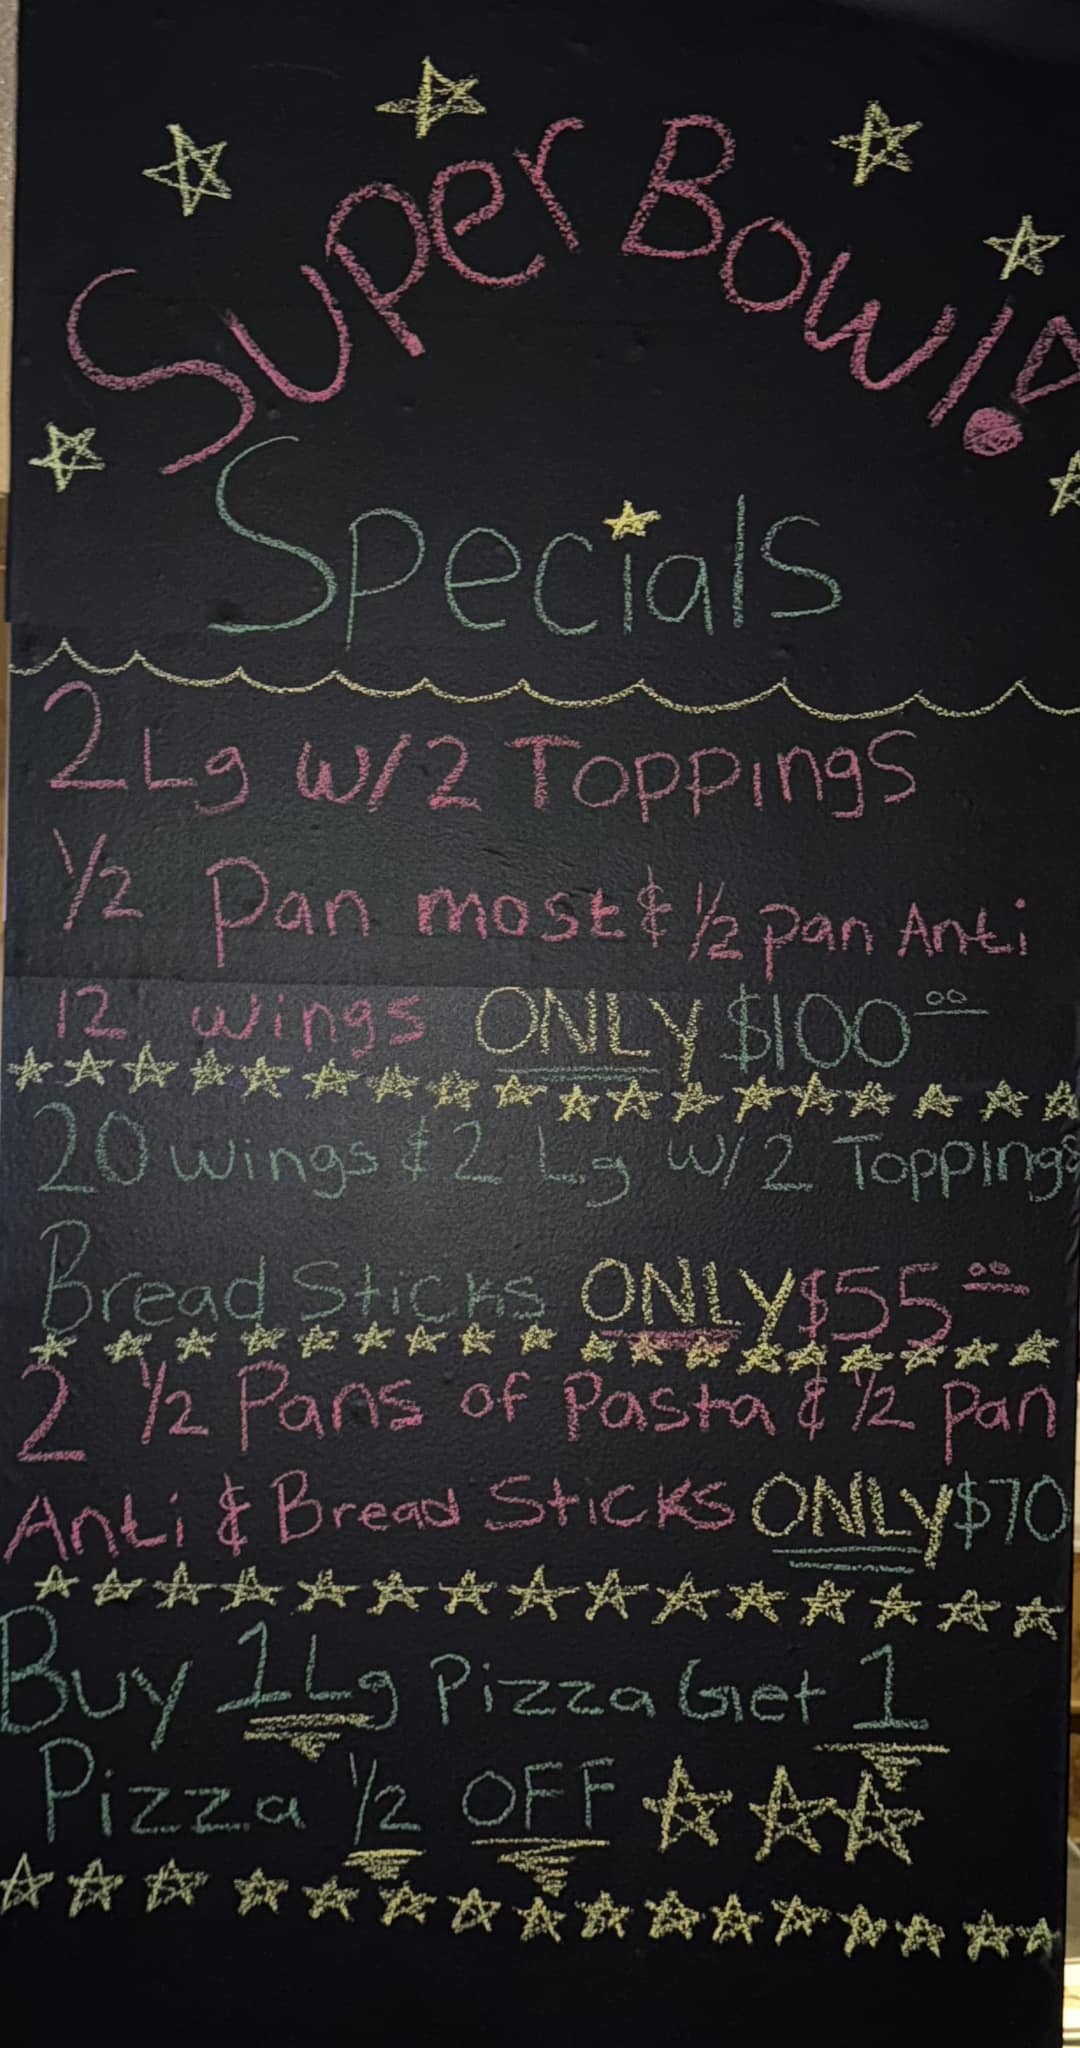 Super Bowl!
Specials
2 Lg w/ 2 Toppings
1/2 Pan most & 1/2 pan Anti
12 wings ONLY $100.00
20 wings & 2 Lg w/ 2 Toppings
Bread Sticks ONLY $55.00
2 1/2 Pans of Pasta & 1/2 pan
Anti & Bread Sticks ONLY $70
Buy 1 Lg Pizza Get 1
Pizza 1/2 OFF